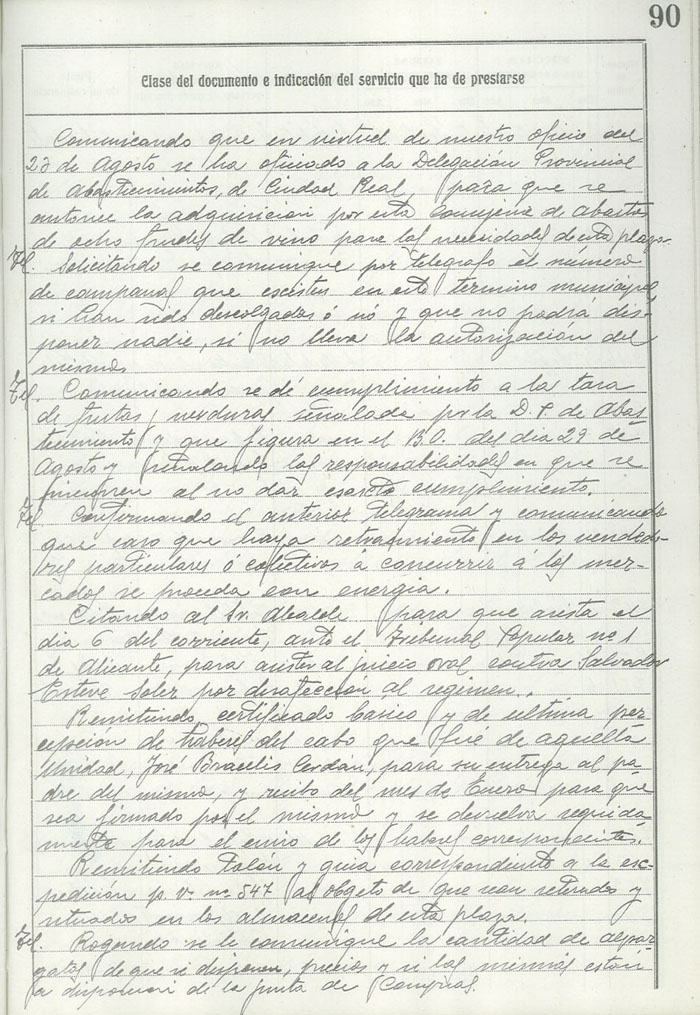 90
Clase del documento e indicación del servicio que ha de prestarse
Comunicando que en virtud de nuestro oficio del
23 de Agosto se ha oficiado a la Delegación Provincial
de Abastecimientos, de Ciudad Real, para que se
autorice la adquisicion por esta Consejeria de Abastos
de ocho de vino para las necesidades de esta plaza.
Tel. Solicitando se comunique por telegrafo el número
de campanas que escisten en este termino municipal
si han sido descolgadas ó no y que no podrá dis-
poner nadie, si no lleva la autorización del
mismo.
Tel. Comunicando se dé cumplimiento a la tasa
de frutas y verduras señalada por la D. P. de Abas
tecimiento y que figura en el B.O. del dia 29 de
Agosto y señalando las responsabilidades en que se
al no dar esacto cumplimiento.
Tel. Confirmando el anterior telegrama y comunicando
que caso que haya retraimiento en los vendedo-
res particulares ó colectivos a concurrir á los mer-
cados se proceda con energia.
Citando al Sr. Alcalde para que asista el
dia 6 del corriente, ante el Tribunal Popular nº 1
de Alicante, para asistir al juicio oral contra Salvador
Esteve Soler por desafección al regimen.
Remitiendo certificado basico y de ultima per
cepción de haberes del cabo que fué de aquella
Unidad, José Cerdán, para su entrega al pa
dre del mismo, y recibo del mes de Enero para que
sea firmado por el mismo y se devuelva seguida
mente para el envio de los haberes correspondientes.
Remitiendo talón y guia correspondiente a la ex-
pedición p. v. nº 547 al objeto de que sean retirados y
situados en los almacenes de esta plaza.
Tel. Rogando se le comunique la cantidad de alpar
gatas de que se disponen, precios y si las mismas están
a disposicion de la junta de Compras.